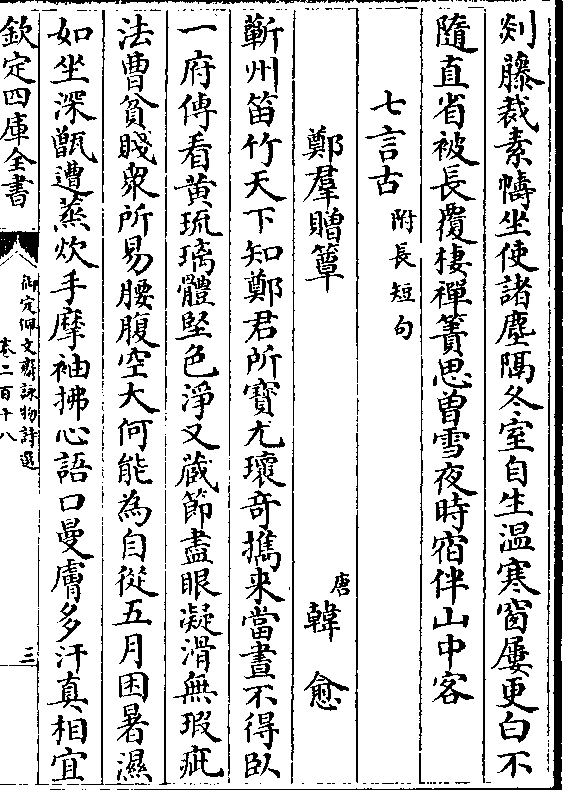 剡藤裁素幬坐使諸塵隔冬室自生温寒窗屢更白不
隨直省被長覆棲禪簀思曽雪夜時宿伴山中客
七言古附長短句
鄭羣贈簟
唐韓愈
蘄州笛竹天下知鄭君所寶尤瓌奇擕来當晝不得臥
一府傳看黄琉璃體堅色淨又藏節盡眼凝滑無瑕疵
法曹貧賤衆所易腰腹空大何能為自從五月困暑濕
如坐深甑遭蒸炊手摩袖拂心語口曼膚多汗真相宜
欽定四庫全書
御定佩文齋詠物詩選
卷二百十八
三